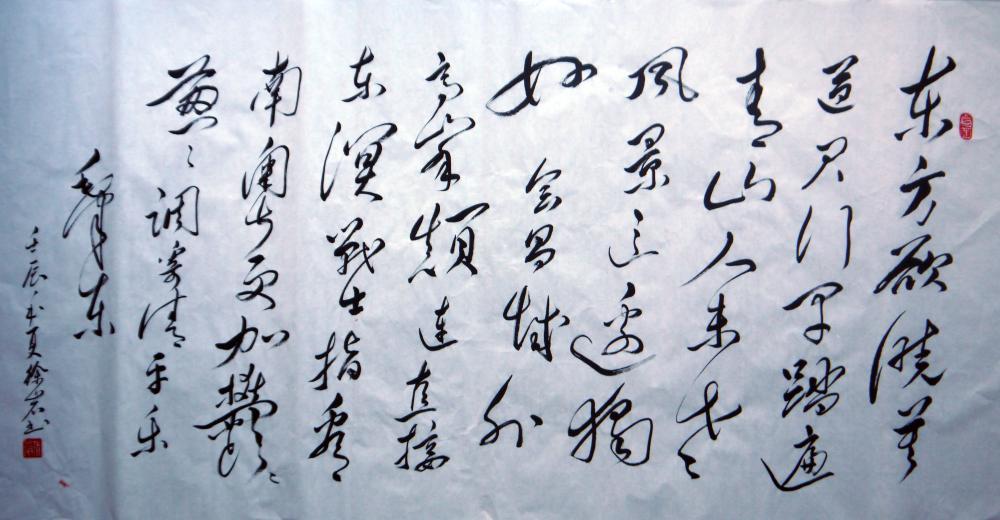 东方欲晓莫
道君行早踏遍
青山人未老
风景这边獨
好会昌城外
高峯顛连直接
东溟戰士指看
南粤更加鬱〻
葱〻调寄清平乐
毛泽东
壬辰夏徐岩书